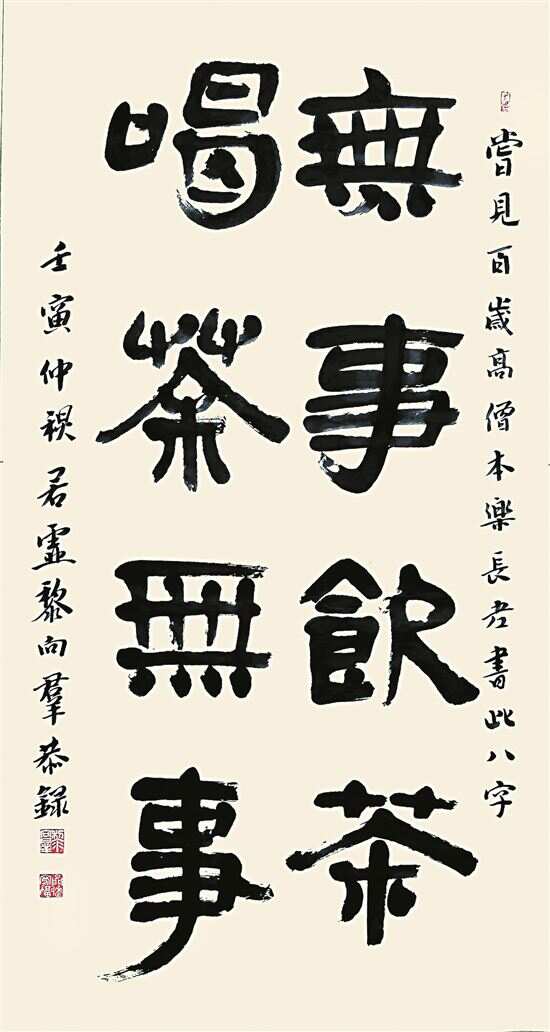 嘗見百歲高僧本樂長老書此八字
無事飲茶
喝茶無事
壬寅仲禊若虛黎向羣恭録